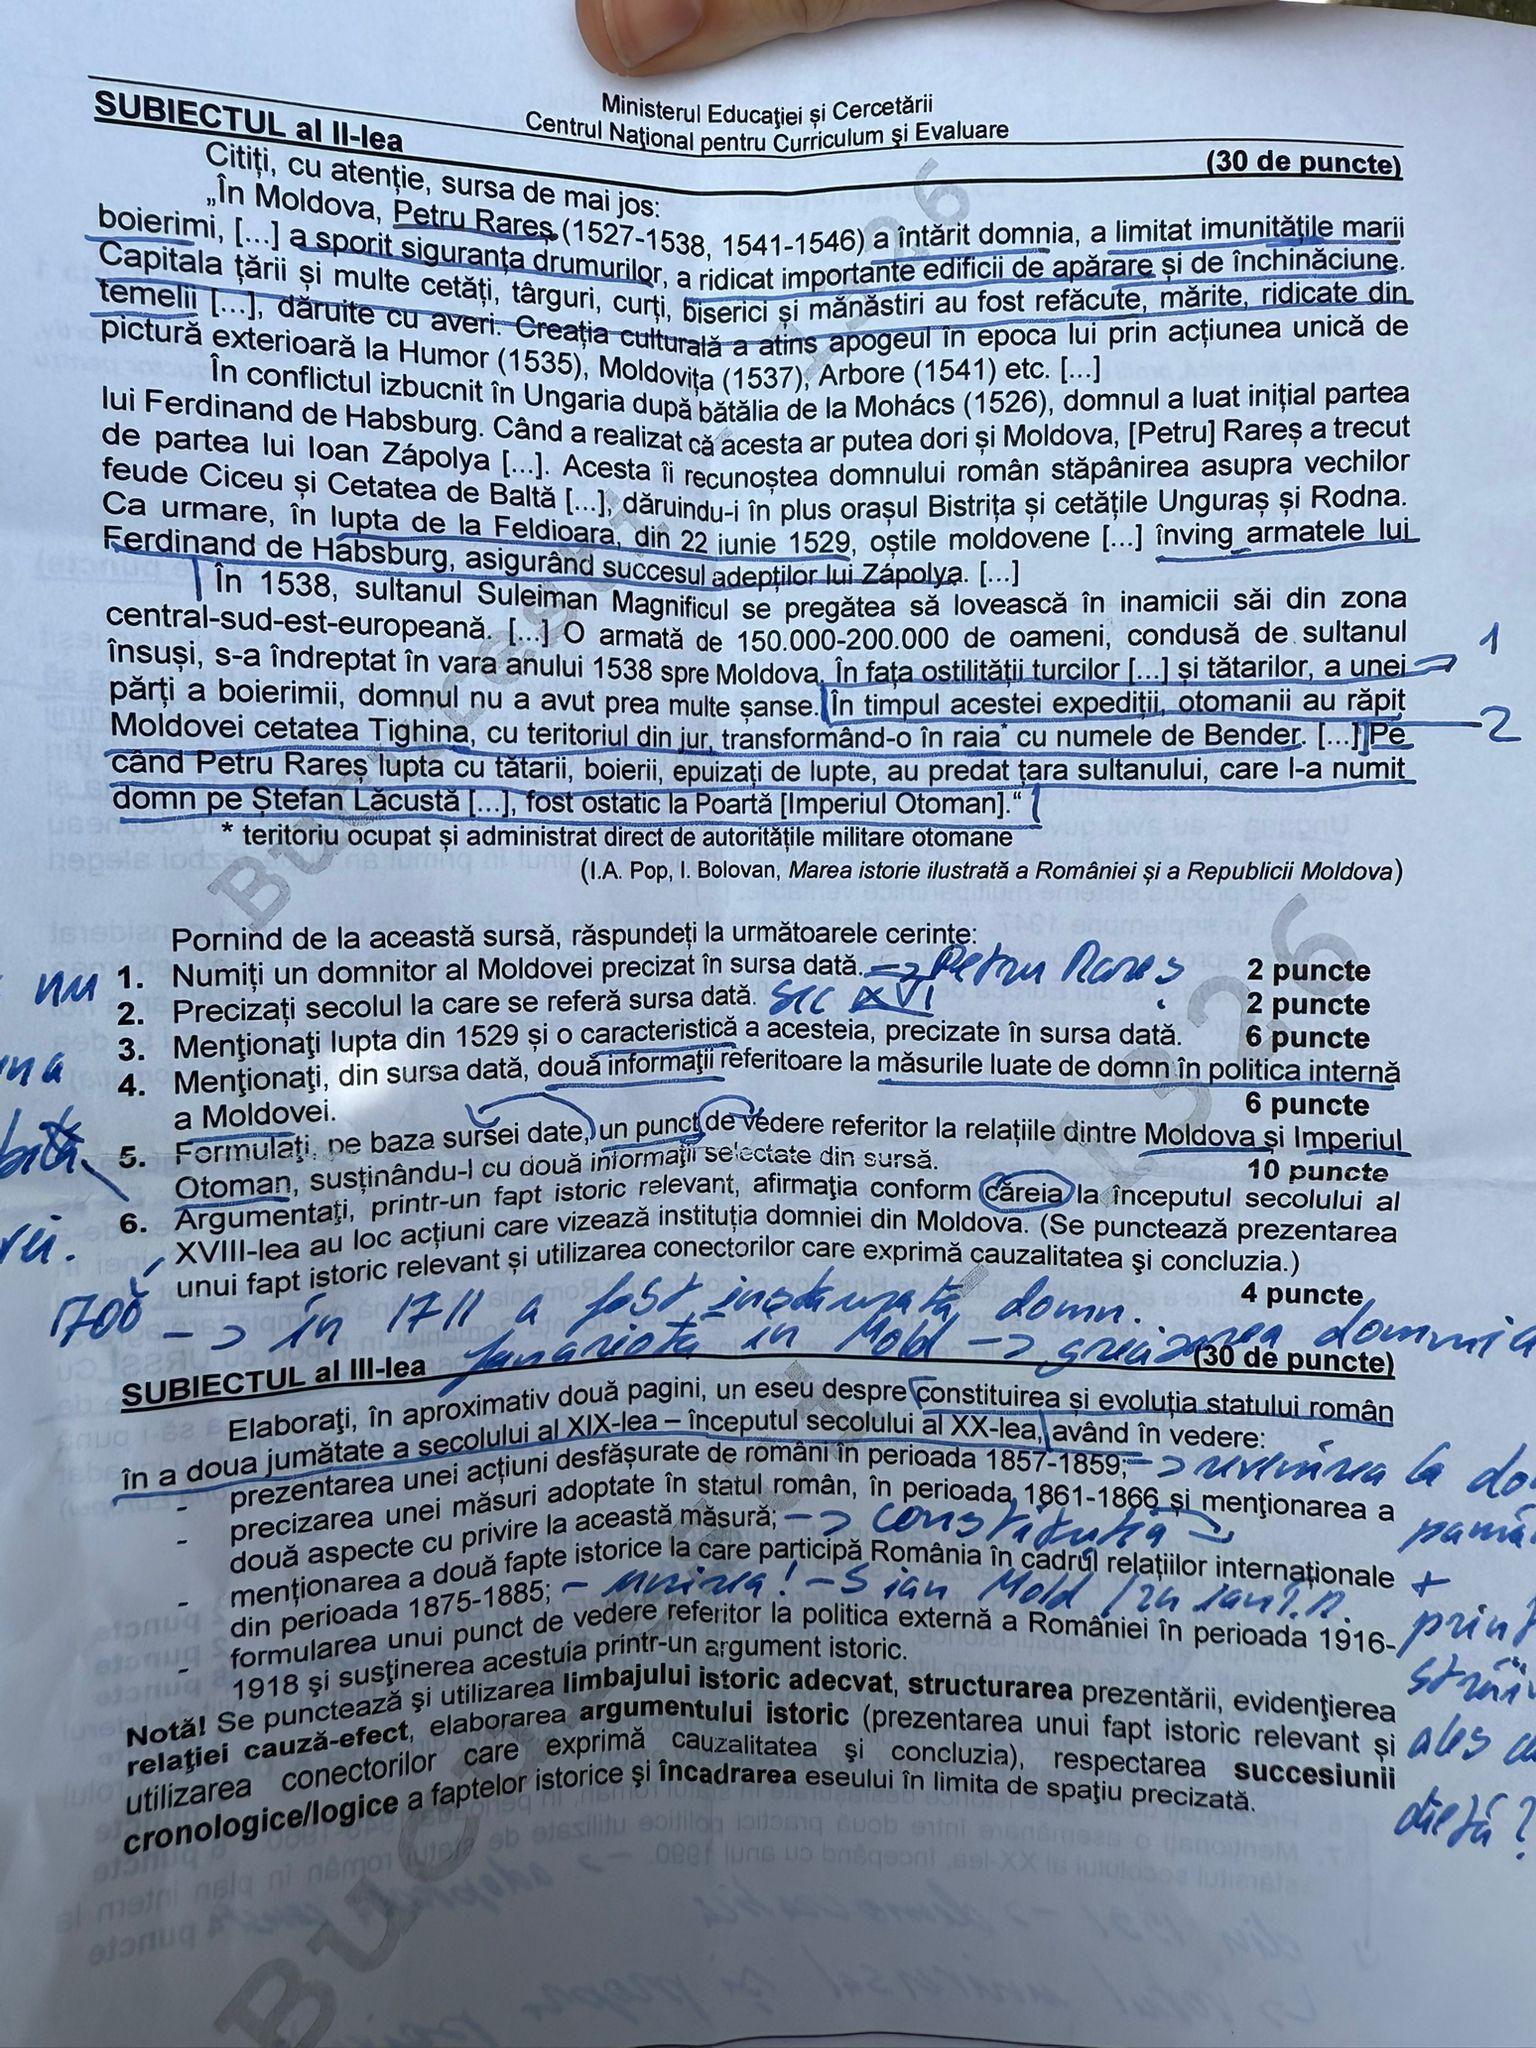 Ministerul Educaţiei şi Cercetării
Centrul Naţional pentru Curriculum şi Evaluare
SUBIECTUL al II-lea (30 de puncte)
Citiți, cu atenție, sursa de mai jos:
„În Moldova, Petru Rareș (1527-1538, 1541-1546) a întărit domnia, a limitat imunitățile marii
boierimi, [...] a sporit siguranța drumurilor, a ridicat importante edificii de apărare și de închinăciune.
Capitala țării și multe cetăți, târguri, curți, biserici și mănăstiri au fost refăcute, mărite, ridicate din
temelii [...], dăruite cu averi. Creația culturală a atins apogeul în epoca lui prin acțiunea unică de
pictură exterioară la Humor (1535), Moldovița (1537), Arbore (1541) etc. [...]
În conflictul izbucnit în Ungaria după bătălia de la Mohács (1526), domnul a luat inițial partea
lui Ferdinand de Habsburg. Când a realizat că acesta ar putea dori și Moldova, [Petru] Rareș a trecut
de partea lui Ioan Zápolya [...]. Acesta îi recunoștea domnului român stăpânirea asupra vechilor
feude Ciceu și Cetatea de Baltă [...], dăruindu-i în plus orașul Bistrița și cetățile Unguraș și Rodna.
Ca urmare, în lupta de la Feldioara, din 22 iunie 1529, oștile moldovene [...] înving armatele lui
Ferdinand de Habsburg, asigurând succesul adepților lui Zápolya. [...]
În 1538, sultanul Suleiman Magnificul se pregătea să lovească în inamicii săi din zona
central-sud-est-europeană. [...] O armată de 150.000-200.000 de oameni, condusă de sultanul
însuși, s-a îndreptat în vara anului 1538 spre Moldova. În fața ostilității turcilor [...] și tătarilor, a unei 1
părți a boierimii, domnul nu a avut prea multe șanse. În timpul acestei expediții, otomanii au răpit
Moldovei cetatea Tighina, cu teritoriul din jur, transformând-o în raia* cu numele de Bender. [...] Pe 2
când Petru Rareș lupta cu tătarii, boierii, epuizați de lupte, au predat țara sultanului, care l-a numit
domn pe Ștefan Lăcustă [...], fost ostatic la Poartă [Imperiul Otoman].“
* teritoriu ocupat și administrat direct de autoritățile militare otomane
(I.A. Pop, I. Bolovan, Marea istorie ilustrată a României și a Republicii Moldova)
Pornind de la această sursă, răspundeți la următoarele cerințe:
nu 1. Numiți un domnitor al Moldovei precizat în sursa dată. -> Petru Rareș 2 puncte
2. Precizați secolul la care se referă sursa dată. sec XVI 2 puncte
3. Menţionaţi lupta din 1529 și o caracteristică a acesteia, precizate în sursa dată. 6 puncte
4. Menţionaţi, din sursa dată, două informaţii referitoare la măsurile luate de domn în politica internă
a Moldovei. 6 puncte
5. Formulați, pe baza sursei date, un punct de vedere referitor la relațiile dintre Moldova și Imperiul
Otoman, susținându-l cu două informaţii selectate din sursă. 10 puncte
6. Argumentaţi, printr-un fapt istoric relevant, afirmaţia conform căreia la începutul secolului al
XVIII-lea au loc acțiuni care vizează instituția domniei din Moldova. (Se punctează prezentarea
unui fapt istoric relevant şi utilizarea conectorilor care exprimă cauzalitatea şi concluzia.)
4 puncte
1700 -> în 1711 a fost instaurată domn.
fanariotă în Mold -> grecizarea domnia
SUBIECTUL al III-lea (30 de puncte)
Elaboraţi, în aproximativ două pagini, un eseu despre constituirea și evoluția statului român
în a doua jumătate a secolului al XIX-lea – începutul secolului al XX-lea, având în vedere:
- prezentarea unei acțiuni desfășurate de români în perioada 1857-1859; ->
- precizarea unei măsuri adoptate în statul român, în perioada 1861-1866 și menţionarea a
două aspecte cu privire la această măsură; -> constituția ->
- menţionarea a două fapte istorice la care participă România în cadrul relațiilor internaționale +
din perioada 1875-1885; - unirea! - 5 ian Mold / 24 ian Ț.R.
- formularea unui punct de vedere referitor la politica externă a României în perioada 1916-
1918 şi susţinerea acestuia printr-un argument istoric.
Notă! Se punctează şi utilizarea limbajului istoric adecvat, structurarea prezentării, evidenţierea
relaţiei cauză-efect, elaborarea argumentului istoric (prezentarea unui fapt istoric relevant şi
utilizarea conectorilor care exprimă cauzalitatea şi concluzia), respectarea succesiunii
cronologice/logice a faptelor istorice şi încadrarea eseului în limita de spaţiu precizată.